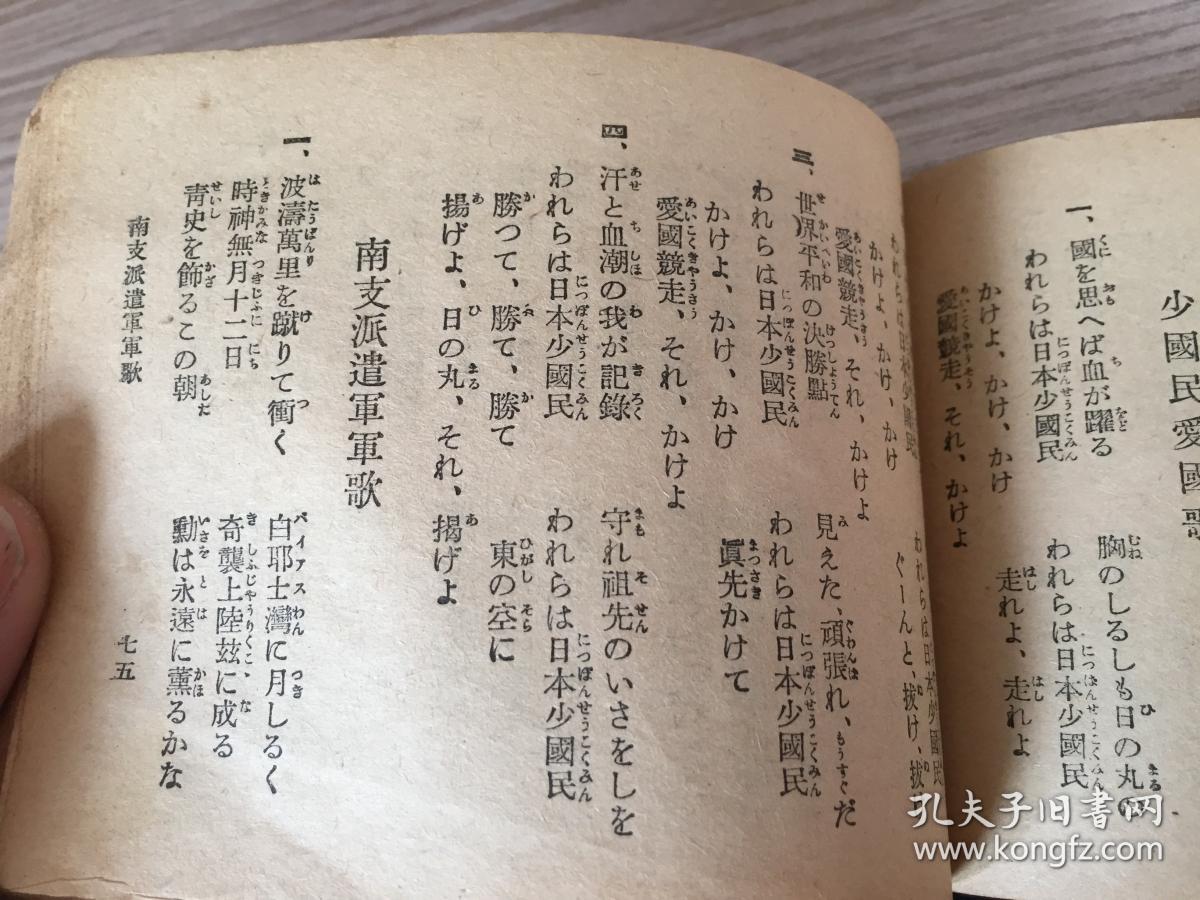 少國民愛國歌
一、國を思へば血が躍る
胸のしるしも日の丸の
われらは日本少國民
われらは日本少國民
かけよ、かけ、かけ
走れよ、走れよ
愛國競走、それ、かけよ
われらは日本少國民
われらは日本少國民
かけよ、かけ、かけ
ぐーんと、拔け、拔
愛國競走、それ、かけよ
三、世界平和の決勝點
見えた、頑張れ、もうすぐだ
われらは日本少國民
われらは日本少國民
かけよ、かけ、かけ
眞先かけて
愛國競走、それ、かけよ
四、汗と血潮の我が記錄
守れ祖先のいさをしを
われらは日本少國民
われらは日本少國民
勝つて、勝て、勝て
東の空に
揚げよ、日の丸、それ、揭げよ
南支派遣軍軍歌
一、波濤萬里を蹴りて衝く
白耶士灣に月しるく
時神無月十二日
奇襲上陸玆に成る
靑史を飾るこの朝
勳は永遠に薫るかな
南支派遣軍軍歌
七五
孔夫子旧书网
www.kongfz.com